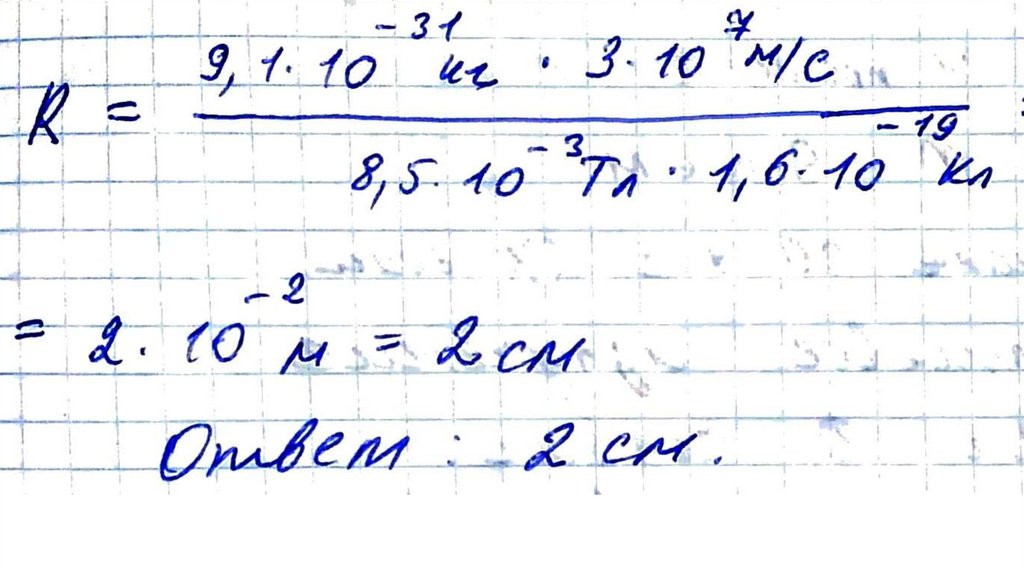 R = (9,1·10⁻³¹ кг · 3·10⁷ м/с) / (8,5·10⁻³ Тл · 1,6·10⁻¹⁹ Кл) =
= 2·10⁻² м = 2 см
Ответ: 2 см.